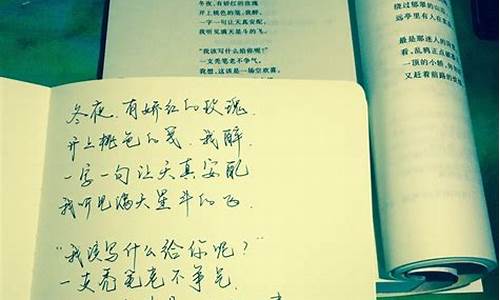 冬夜，有娇红的玫瑰
开上桃色的笺，我醉，
一字一句让天真安配，
我听见满天星斗的飞。
“我该写什么给你呢？”
一支秃笔老不争气。
我想，这该是一场空欢喜，
绕过郁郁的山
远亭里有人在
最是那迷人的
看，乱鸦正点破
一顶的小轿，
又赶着前路的
冬夜，有娇红的玫瑰，
开上桃色的笺，我醉，
一字一句让天真安配
我听见满天星斗的飞.
“我该写什么给你呢？”
一支秃笔老不争气.